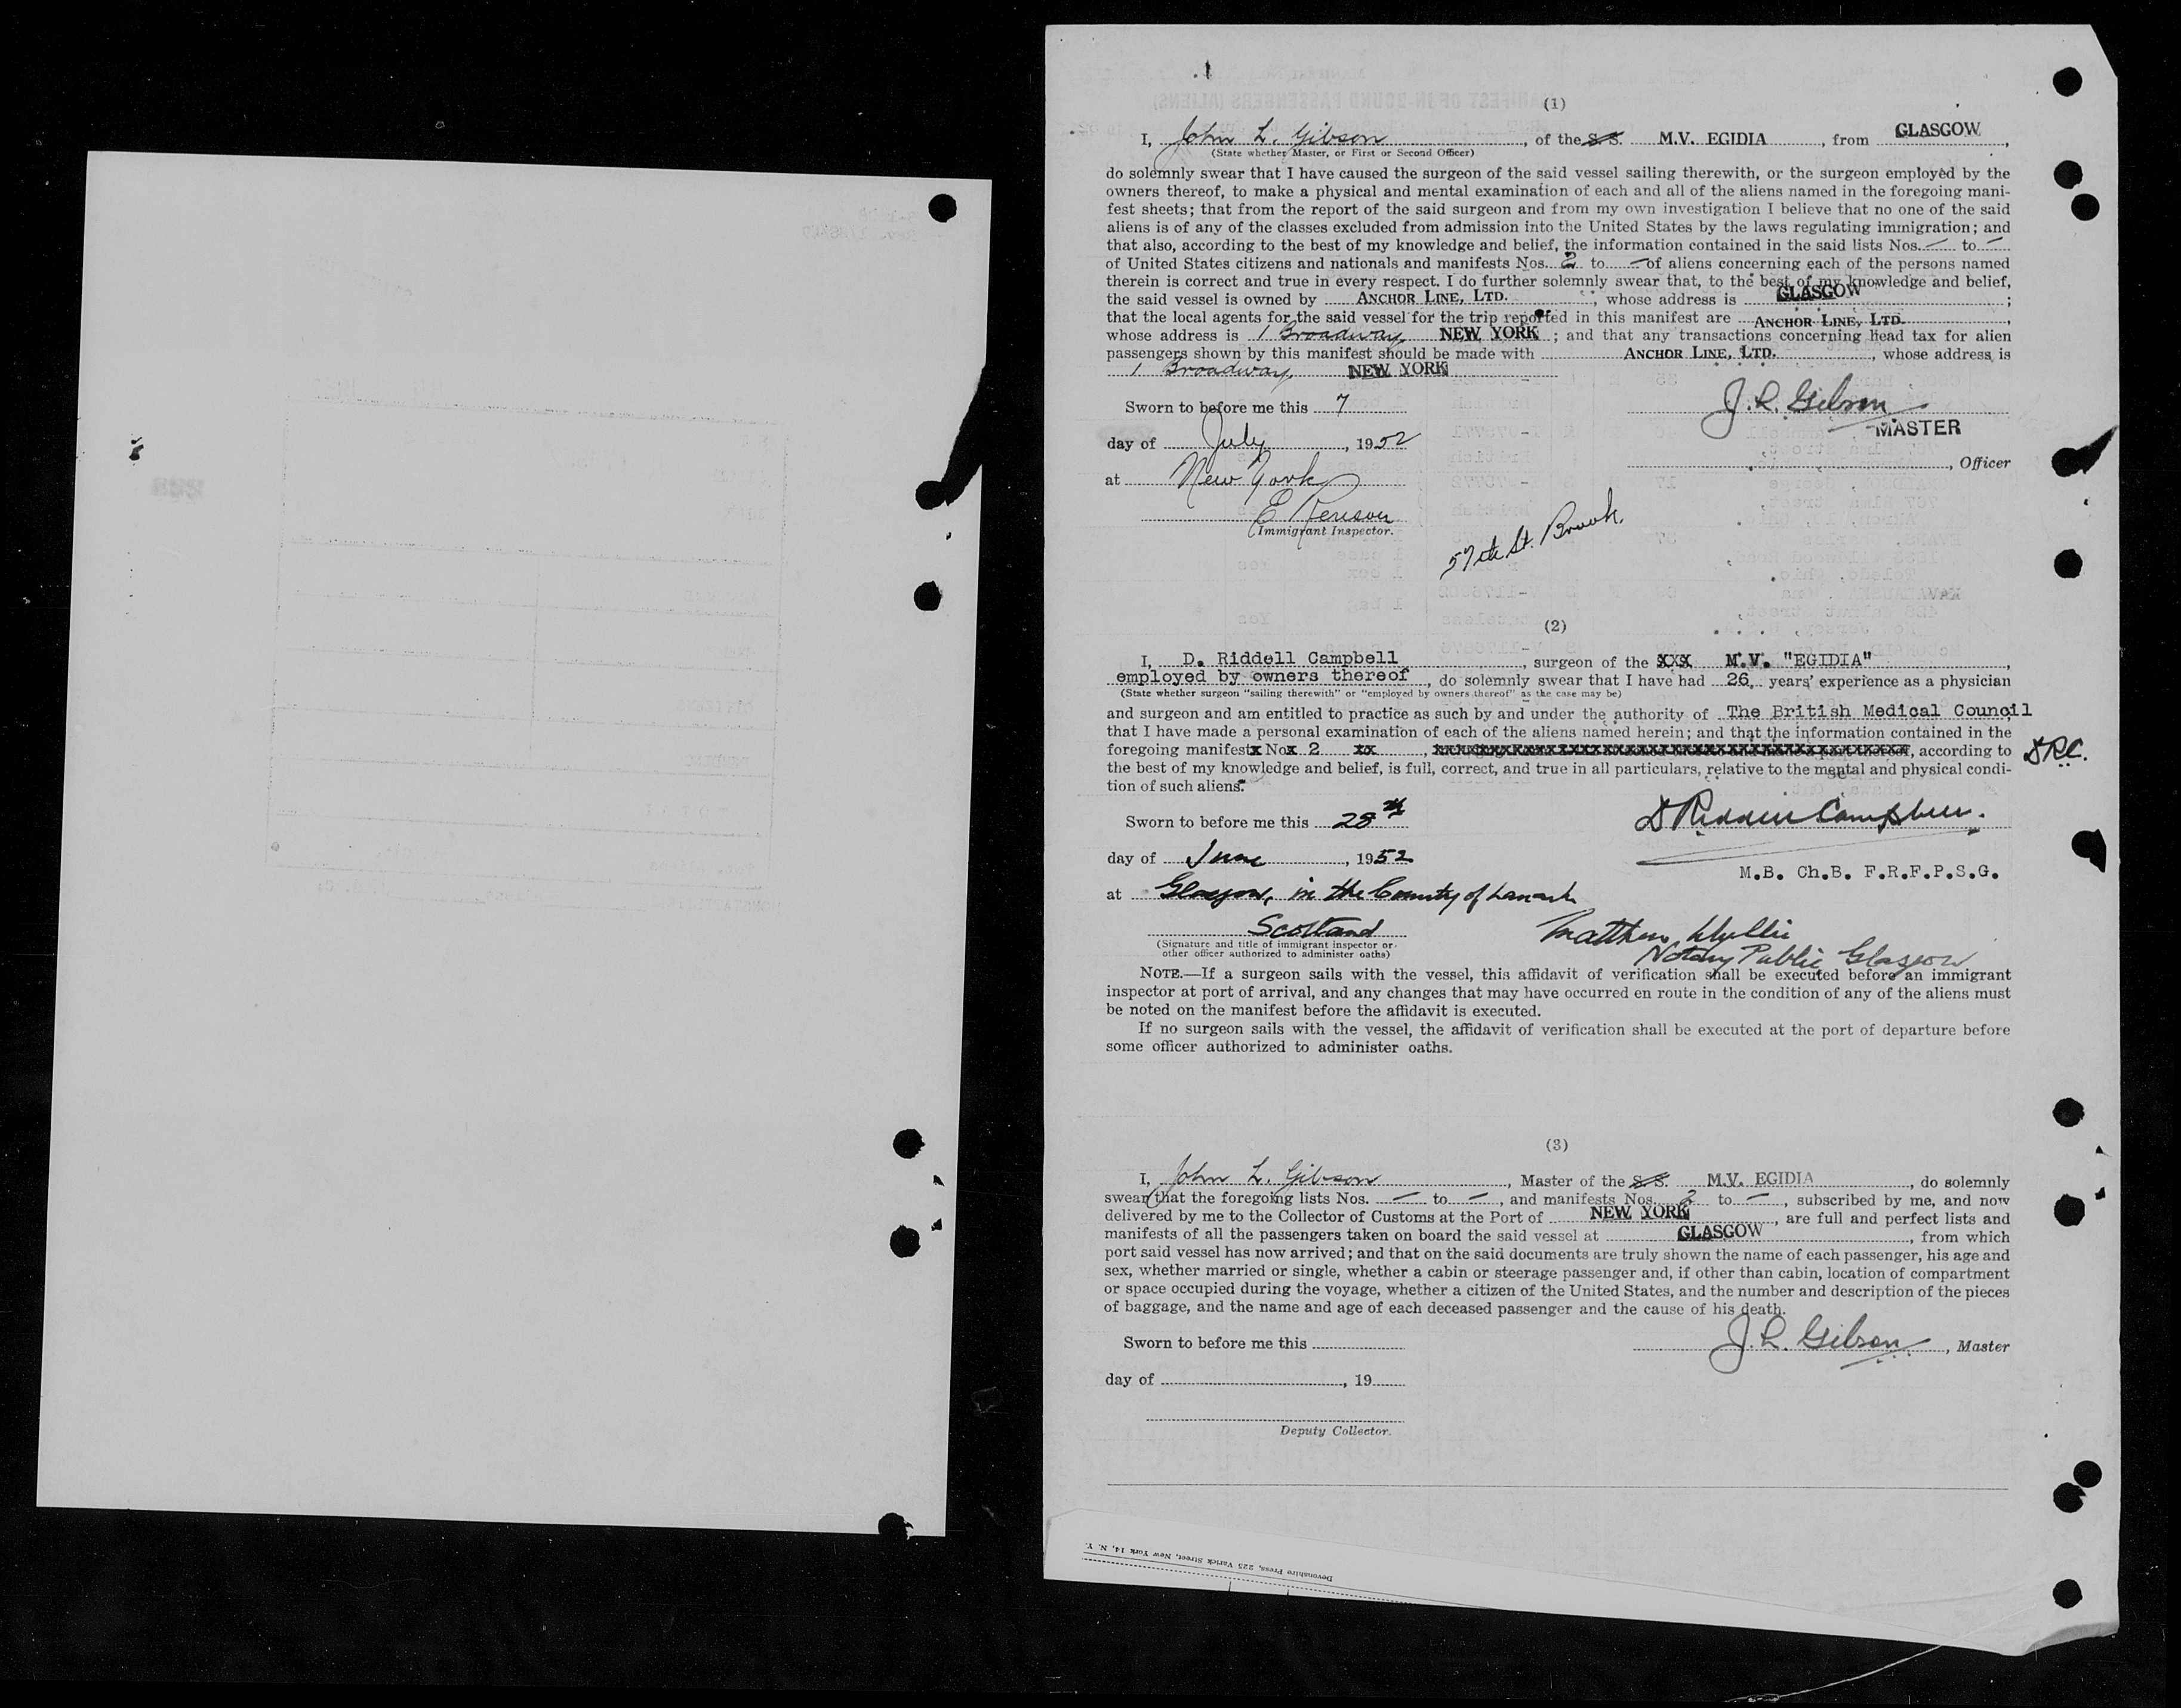 (1)
I, John L. Gibson, of the S.S. M.V. EGIDIA, from GLASGOW,
(State whether Master, or First or Second Officer)
do solemnly swear that I have caused the surgeon of the said vessel sailing therewith, or the surgeon employed by the
owners thereof, to make a physical and mental examination of each and all of the aliens named in the foregoing mani-
fest sheets; that from the report of the said surgeon and from my own investigation I believe that no one of the said
aliens is of any of the classes excluded from admission into the United States by the laws regulating immigration; and
that also, according to the best of my knowledge and belief, the information contained in the said lists Nos. — to —
of United States citizens and nationals and manifests Nos. 2 to — of aliens concerning each of the persons named
therein is correct and true in every respect. I do further solemnly swear that, to the best of my knowledge and belief,
the said vessel is owned by ANCHOR LINE, LTD., whose address is GLASGOW;
that the local agents for the said vessel for the trip reported in this manifest are ANCHOR LINE, LTD.,
whose address is 1 Broadway, NEW YORK; and that any transactions concerning head tax for alien
passengers shown by this manifest should be made with ANCHOR LINE, LTD., whose address is
1 Broadway, NEW YORK
Sworn to before me this 7
J. L. Gibson
MASTER
day of July, 1952
, Officer
at New York
Immigrant Inspector.
57th St. Brook.
(2)
I, D. Riddell Campbell, surgeon of the XXX M.V. "EGIDIA",
employed by owners thereof, do solemnly swear that I have had 26 years' experience as a physician
(State whether surgeon "sailing therewith" or "employed by owners thereof" as the case may be)
and surgeon and am entitled to practice as such by and under the authority of The British Medical Council
that I have made a personal examination of each of the aliens named herein; and that the information contained in the
foregoing manifestx Nox 2 xx, according to DRC.
the best of my knowledge and belief, is full, correct, and true in all particulars, relative to the mental and physical condi-
tion of such aliens.
Sworn to before me this 28th
D Riddell Campbell.
day of June, 1952
M.B. Ch.B. F.R.F.P.S.G.
at Glasgow, in the County of Lanark
Scotland
Matthew Wyllie
Notary Public Glasgow
(Signature and title of immigrant inspector or
other officer authorized to administer oaths)
NOTE.—If a surgeon sails with the vessel, this affidavit of verification shall be executed before an immigrant
inspector at port of arrival, and any changes that may have occurred en route in the condition of any of the aliens must
be noted on the manifest before the affidavit is executed.
If no surgeon sails with the vessel, the affidavit of verification shall be executed at the port of departure before
some officer authorized to administer oaths.
(3)
I, John L. Gibson, Master of the S.S. M.V. EGIDIA, do solemnly
swear that the foregoing lists Nos. — to —, and manifests Nos. 2 to —, subscribed by me, and now
delivered by me to the Collector of Customs at the Port of NEW YORK, are full and perfect lists and
manifests of all the passengers taken on board the said vessel at GLASGOW, from which
port said vessel has now arrived; and that on the said documents are truly shown the name of each passenger, his age and
sex, whether married or single, whether a cabin or steerage passenger and, if other than cabin, location of compartment
or space occupied during the voyage, whether a citizen of the United States, and the number and description of the pieces
of baggage, and the name and age of each deceased passenger and the cause of his death.
Sworn to before me this
J. L. Gibson, Master
day of , 19
Deputy Collector.
Devonshire Press, 225 Varick Street, New York 14, N. Y.